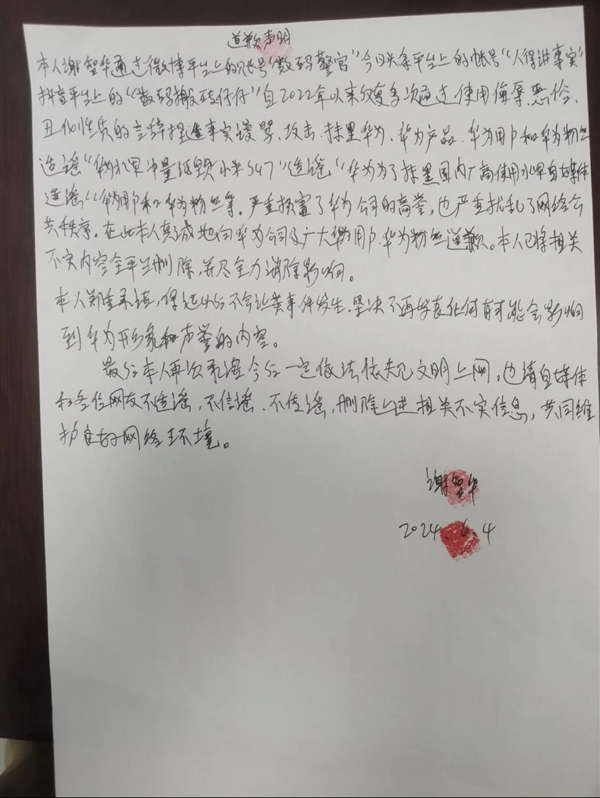 道歉声明
本人谢智华通过微博平台上的账号“数码警官”今日头条平台上的帐号“人得讲事实”
抖音平台上的“数码搬砖仔仔”自2022年以来反复多次通过使用侮辱、恶俗、
丑化性质的言辞捏造事实谩骂、攻击、抹黑华为、华为产品、华为用户和华为粉丝
造谣“华为水军 诋毁小米SU7”造谣“华为为了抹黑国内厂商使用水军自媒体
造谣“华为用户和华为粉丝等。严重损害了华为公司的商誉,也严重扰乱了网络公
共秩序。在此本人真诚地向华为公司及广大华为用户、华为粉丝道歉。本人已将相关
不实内容全平台删除,并尽全力消除影响。
本人郑重承诺,保证以后不会让类事件发生,坚决不再发表任何有可能会影响
到华为形象和声誉的内容。
最后本人再次承诺今后一定依法依规文明上网,也请自媒体
和各位网友不造谣,不信谣、不传谣,删除上述相关不实信息,共同维
护良好网络环境。
谢智华
2024.6.4